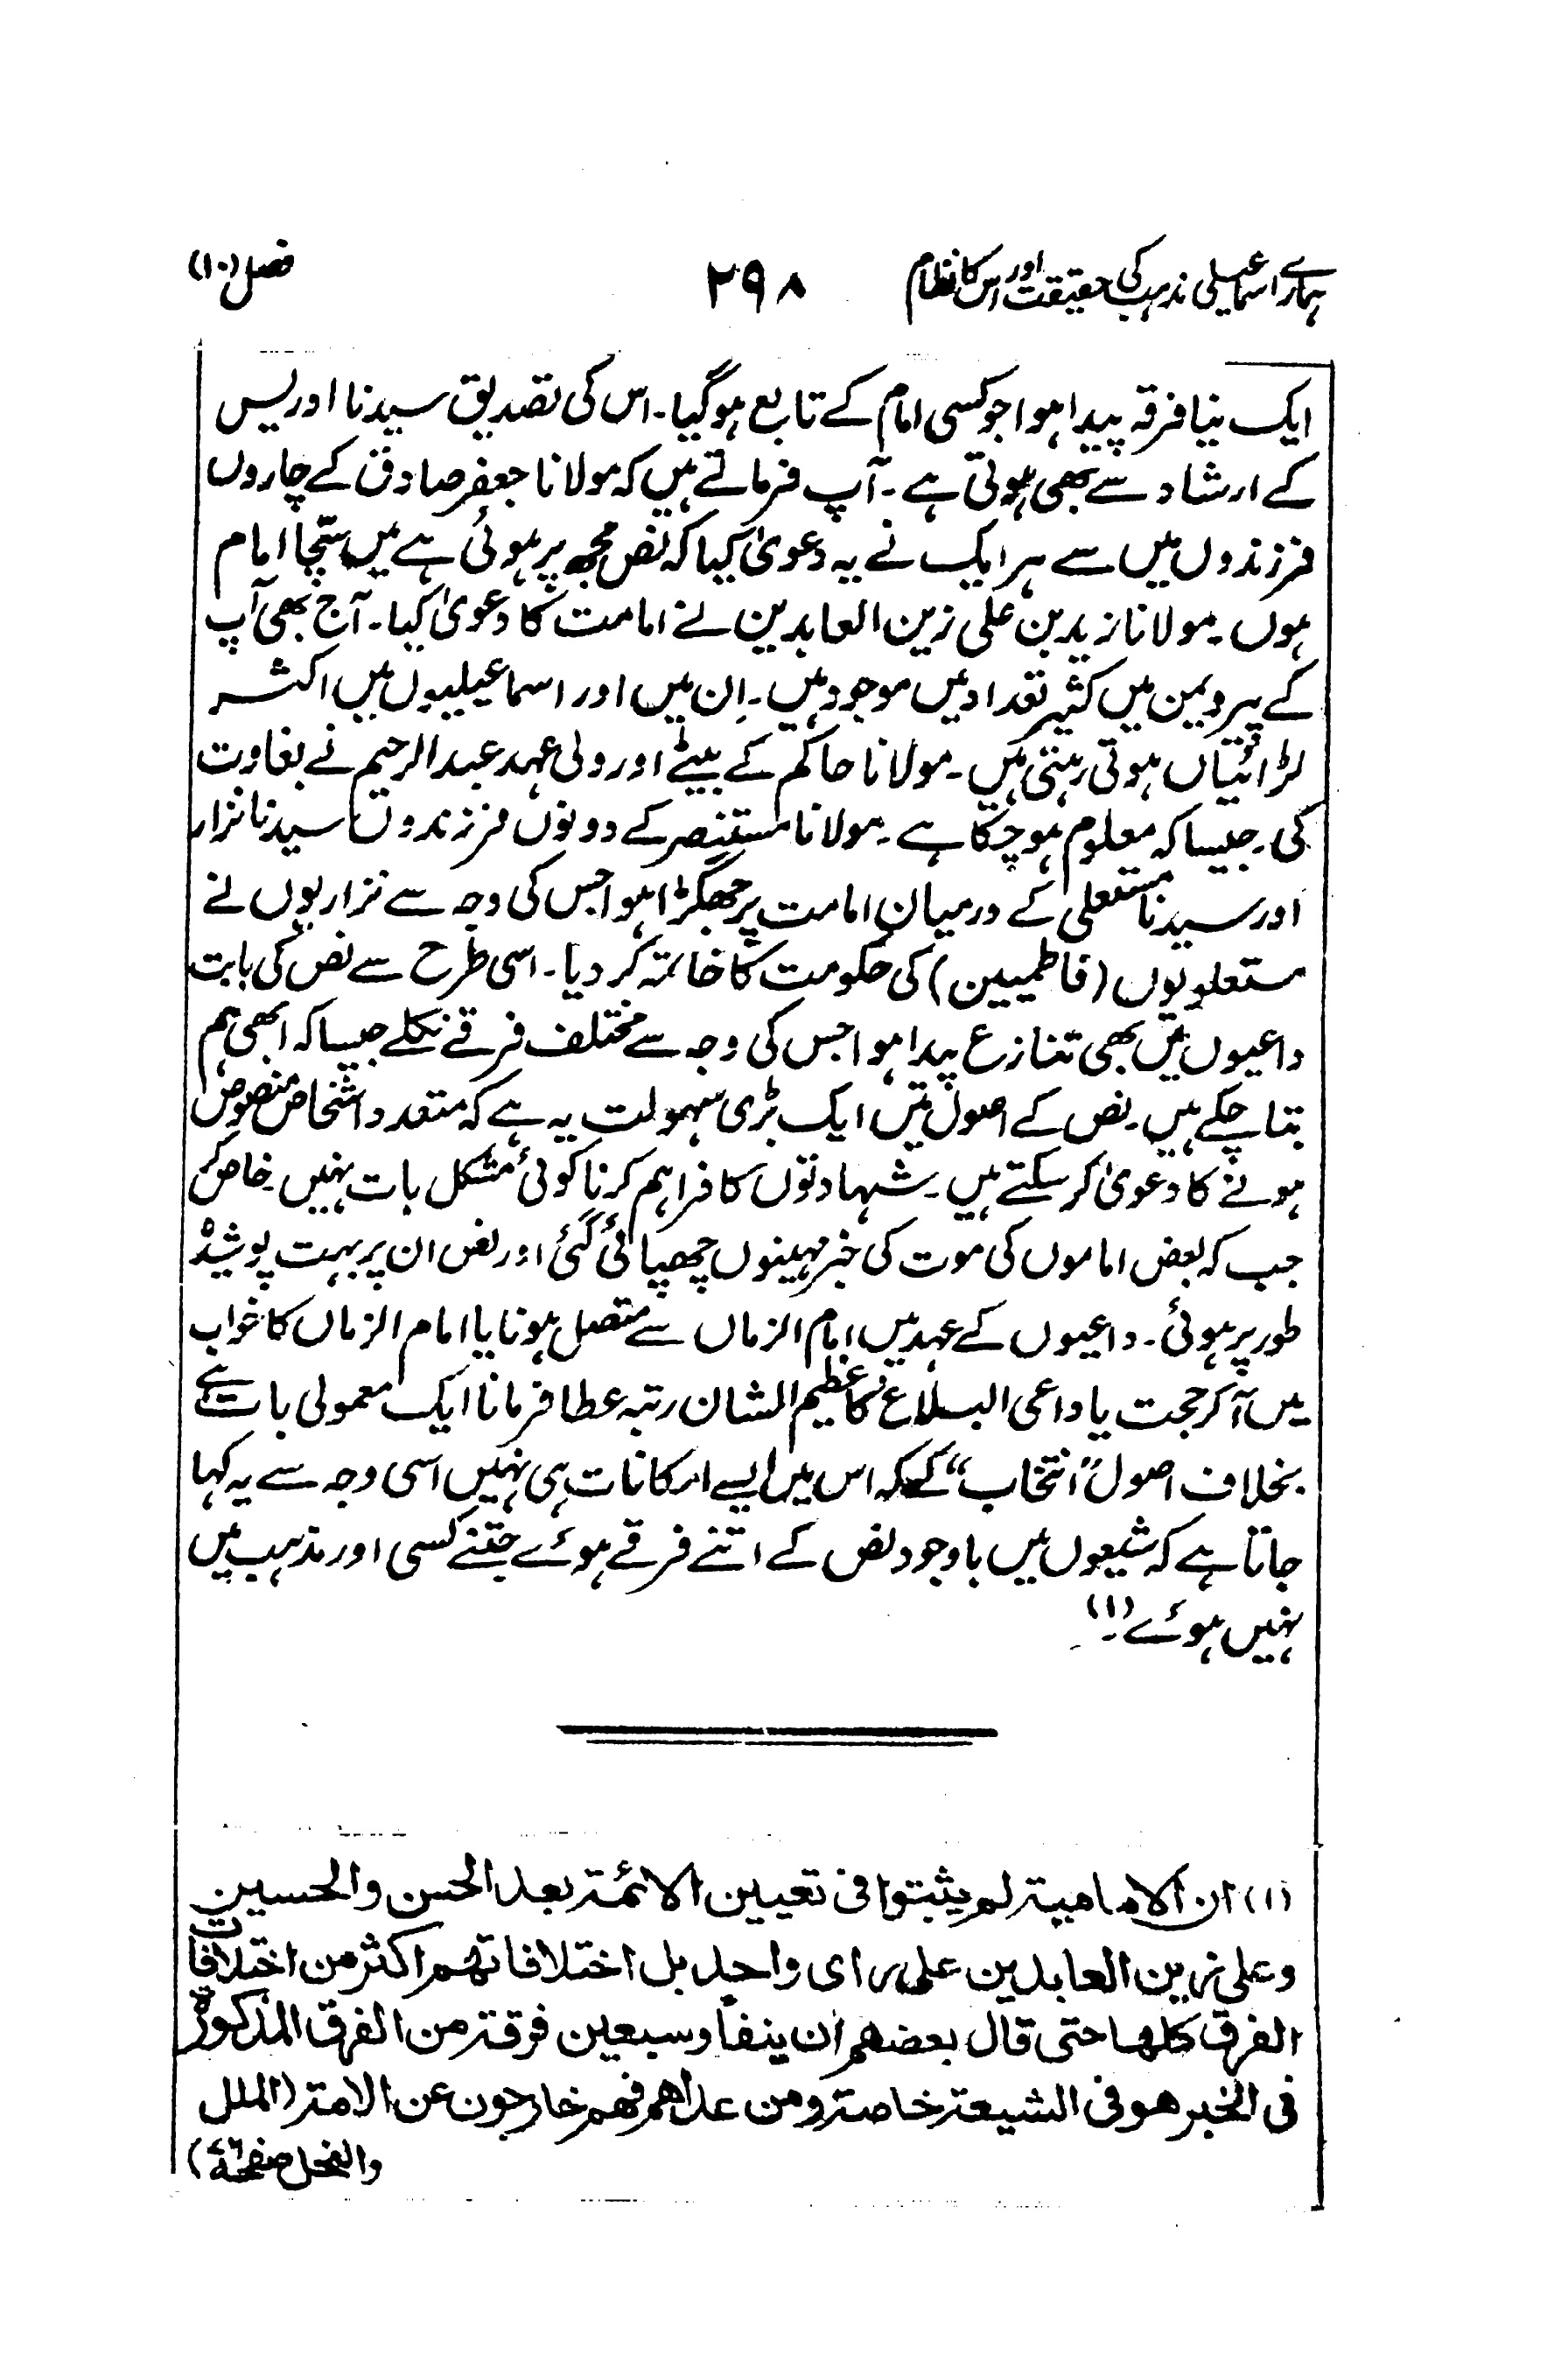 ہمارے اسماعیلی مذہب کی حقیقت اور اس کا نظام ۲۹۸ فصل (۱۰)
ایک نیا فرقہ پیدا ہوا جو کسی امام کے تابع ہوگیا۔ اس کی تصدیق سیدنا ادریس
کے ارشاد سے بھی ہوتی ہے۔ آپ فرماتے ہیں کہ مولانا جعفر صادق کے چاروں
فرزندوں میں سے ہر ایک نے یہ دعویٰ کیا کہ نص مجھ پر ہوئی ہے میں سچّا امام
ہوں۔ مولانا زید بن علی زین العابدین نے امامت کا دعویٰ کیا۔ آج بھی آپ
کے پیرو یمن میں کثیر تعداد میں موجود ہیں۔ اِن میں اور اسماعیلیوں میں اکثر
لڑائیاں ہوتی رہتی ہیں۔ مولانا حاکم کے بیٹے اور ولی عہد عبدالرحیم نے بغاوت
کی۔ جیسا کہ معلوم ہوچکا ہے۔ مولانا مستنصر کے دونوں فرزندوں سیدنا نزار
اور سیدنا مستعلی کے درمیان امامت پر جھگڑا ہوا جس کی وجہ سے نزاریوں نے
مستعلویوں (فاطمیین) کی حکومت کا خاتمہ کر دیا۔ اسی طرح سے نص کی بابت
داعیوں میں بھی تنازع پیدا ہوا جس کی وجہ سے مختلف فرقے نکلے جیسا کہ ابھی ہم
بتا چکے ہیں۔ نص کے اصول میں ایک بڑی سہولت یہ ہے کہ متعدد اشخاص منصوص
ہونے کا دعویٰ کر سکتے ہیں۔ شہادتوں کا فراہم کرنا کوئی مشکل بات نہیں۔ خاص کر
جب کہ بعض اماموں کی موت کی خبر مہینوں چھپائی گئی اور نص ان پر بہت پوشیدہ
طور پر ہوئی۔ داعیوں کے عہد میں امام الزماں سے متصل ہونا یا امام الزماں کا خواب
میں آکر حجت یا داعی البلاغ کا عظیم الشان رتبہ عطا فرمانا ایک معمولی بات ہے
بخلاف اصول "انتخاب" کے کہ اس میں ایسے امکانات ہی نہیں اسی وجہ سے یہ کہا
جاتا ہے کہ شیعوں میں باوجود نص کے اتنے فرقے ہوئے جتنے کسی اور مذہب میں
نہیں ہوئے (۱)۔
(۱) ان الامامیۃ لم یثبتوا فی تعیین الائمۃ بعد الحسن والحسین
وعلی زین العابدین علی رای واحد بل اختلافاتہم اکثر من اختلافات
الفرق کلہا حتی قال بعضہم ان ینفاً وسبعین فرقۃ من الفرق المذکورۃ
فی الخبر ھو فی الشیعۃ خاصۃ ومن عداھم فہم خارجون عن الامۃ (الملل
والنحل صفحۃ)